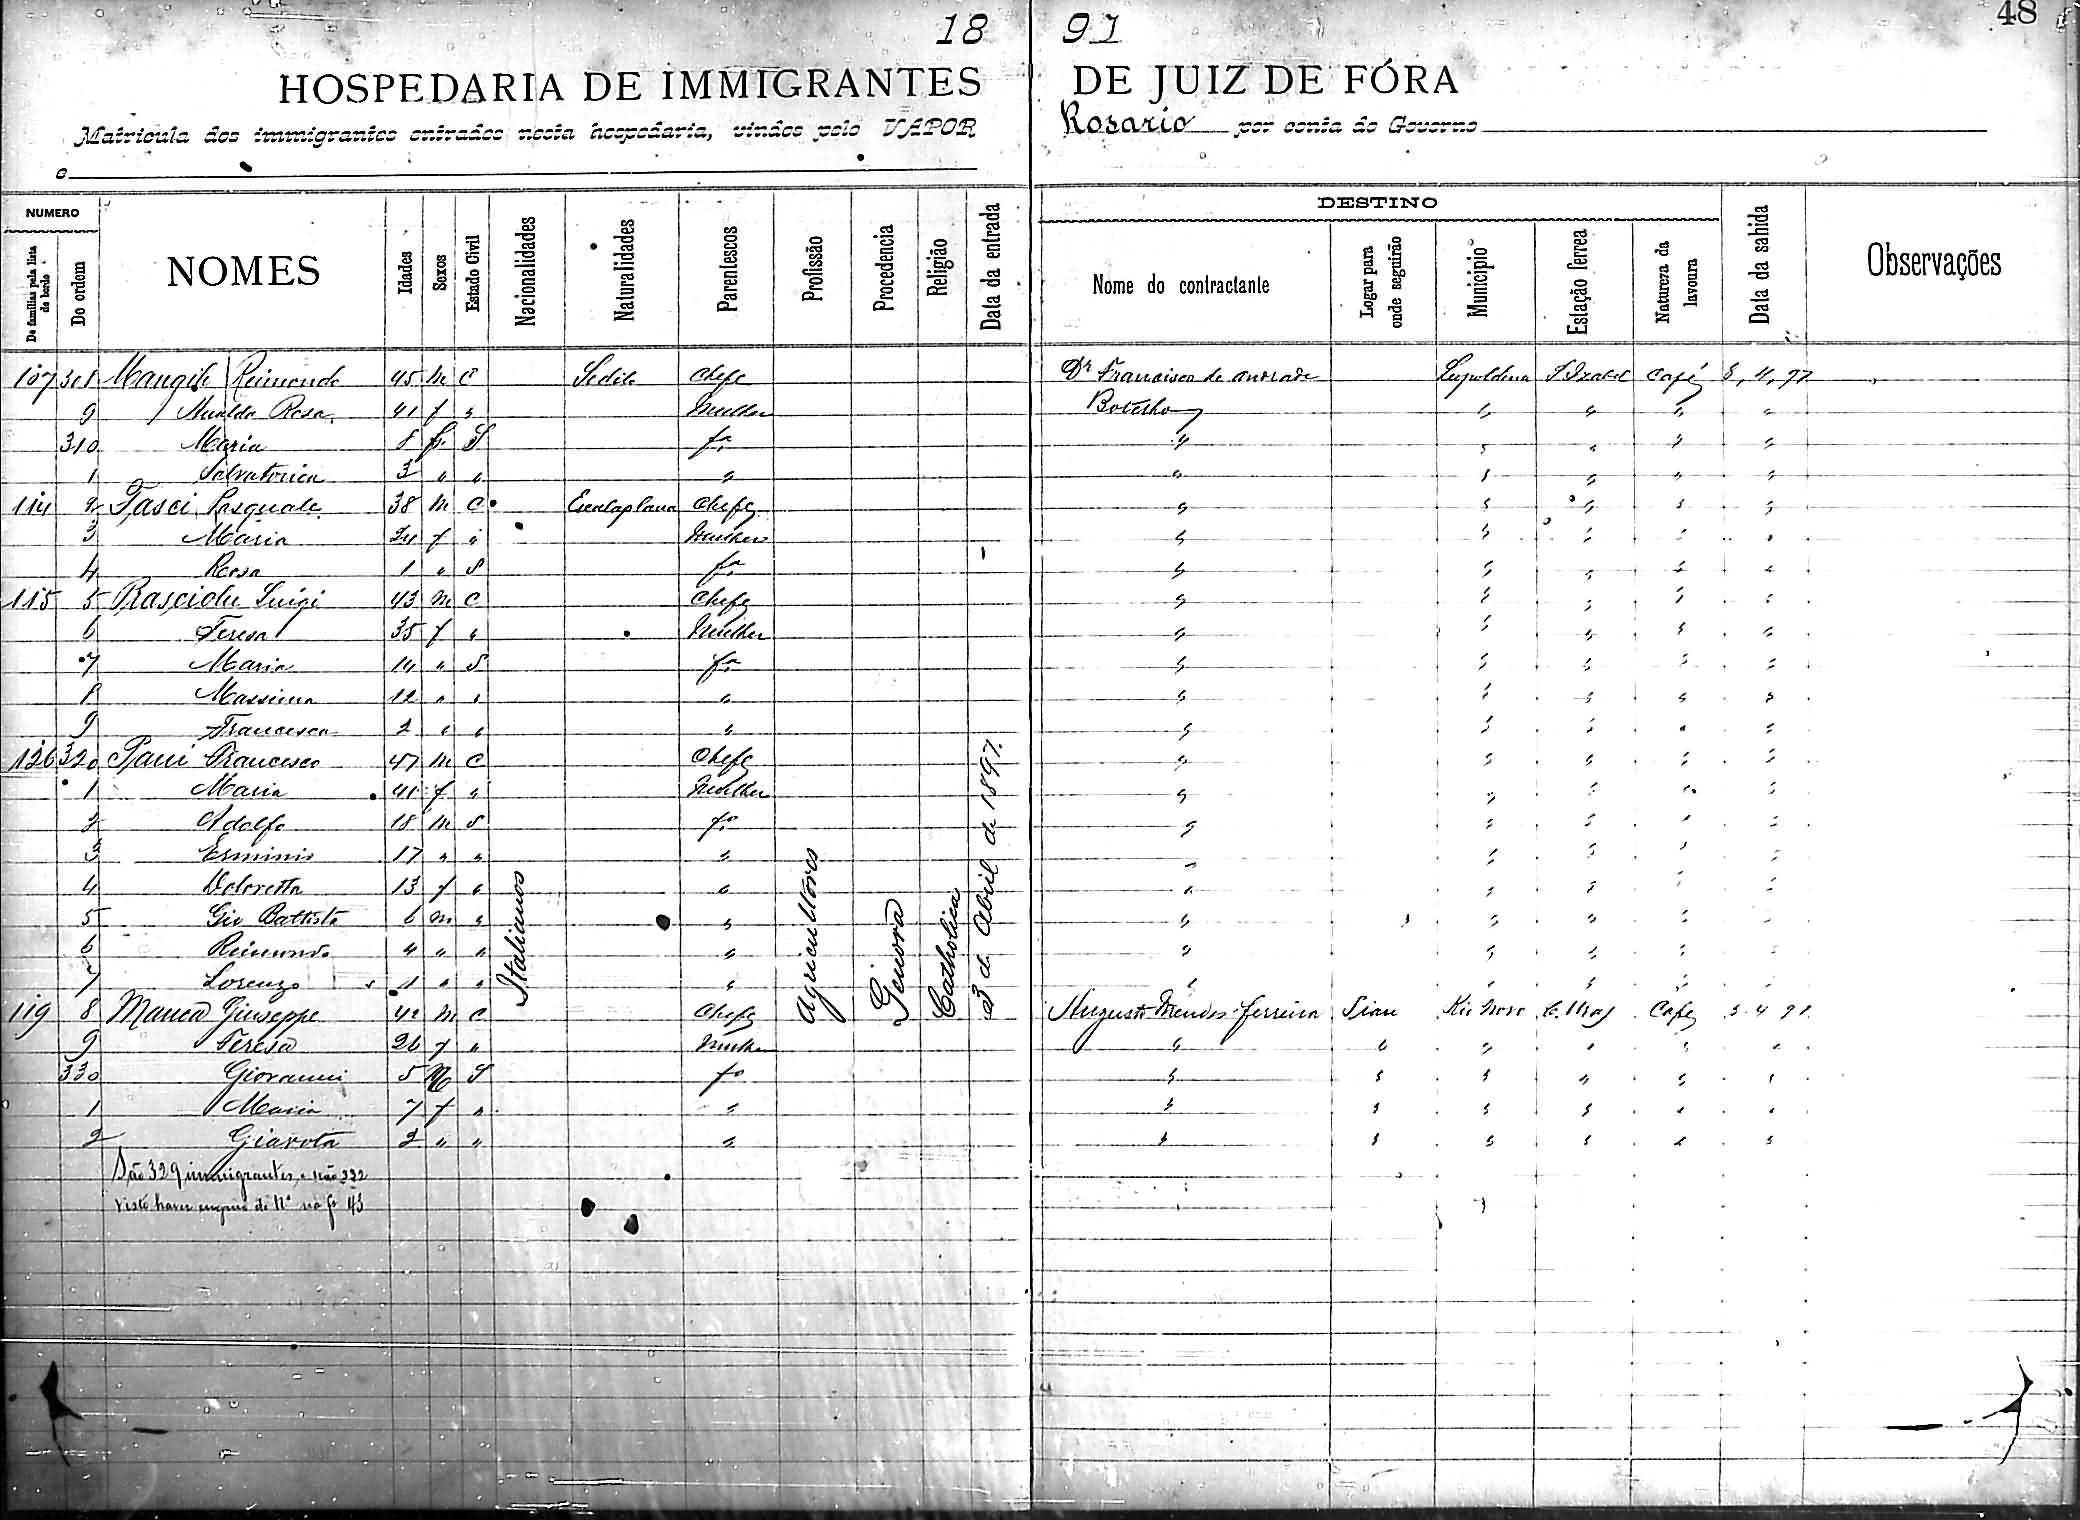 18 97 48
HOSPEDARIA DE IMMIGRANTES DE JUIZ DE FÓRA
Matricula dos immigrantes entrados nesta hospedaria, vindos pelo VAPOR Rosario por conta do Governo
NUMERO
De familias pela lista de bordo
Do ordem
NOMES
Idades
Sexos
Estado Civil
Nacionalidades
Naturalidades
Parentescos
Profissão
Procedencia
Religião
Data da entrada
DESTINO
Nome do contractante
Logar para onde seguirão
Municipio
Estação ferrea
Natureza da lavoura
Data da sahida
Observações
107 308 Reimondo 45 M C Sedilo Chefe Dr Francisco de Andrade Leopoldina S Izabel Café
9 Rosa 41 f " Mulher Botelho " " " "
310 Maria 8 f S fa " " " " "
1 Salvatorica 3 " " " " " " " "
114 2 Pasquale 38 M C Escalaplana Chefe " " " " "
3 Maria 24 f " Mulher " " " " "
4 Rosa 1 " S fa " " " " "
115 5 Luigi 43 M C Chefe " " " " "
6 Teresa 35 f " Mulher " " " " "
7 Maria 14 " S fa " " " " "
8 Massima 12 " " " " " " " "
9 Francesca 2 " " " " " " " "
126 320 Francesco 47 M C Chefe " " " " "
1 Maria 41 f " Mulher " " " " "
2 Adolfo 18 M S fo " " " " "
3 Erminio 17 " " " " " " " "
4 13 f " " " " " " "
5 Gio Battista 6 M " " " " " " "
6 Reimondo 4 " " " " " " " "
7 Lorenzo 1 " " " " " " "
Italianos
Agricultores
Genova
Catholica
3 de Abril de 1897.
119 8 Manca Giuseppe 42 M C Chefe Augusto Mendes Ferreira Rio Novo Café 5 4 97
9 Teresa 26 f " Mulher " " " " " "
330 Giovanni 5 M S fo " " " " " "
1 Maria 7 f " " " " " " " "
2 2 " " " " " " " " "
São 329 immigrantes, e não 332
visto haver engano de No na fl 43